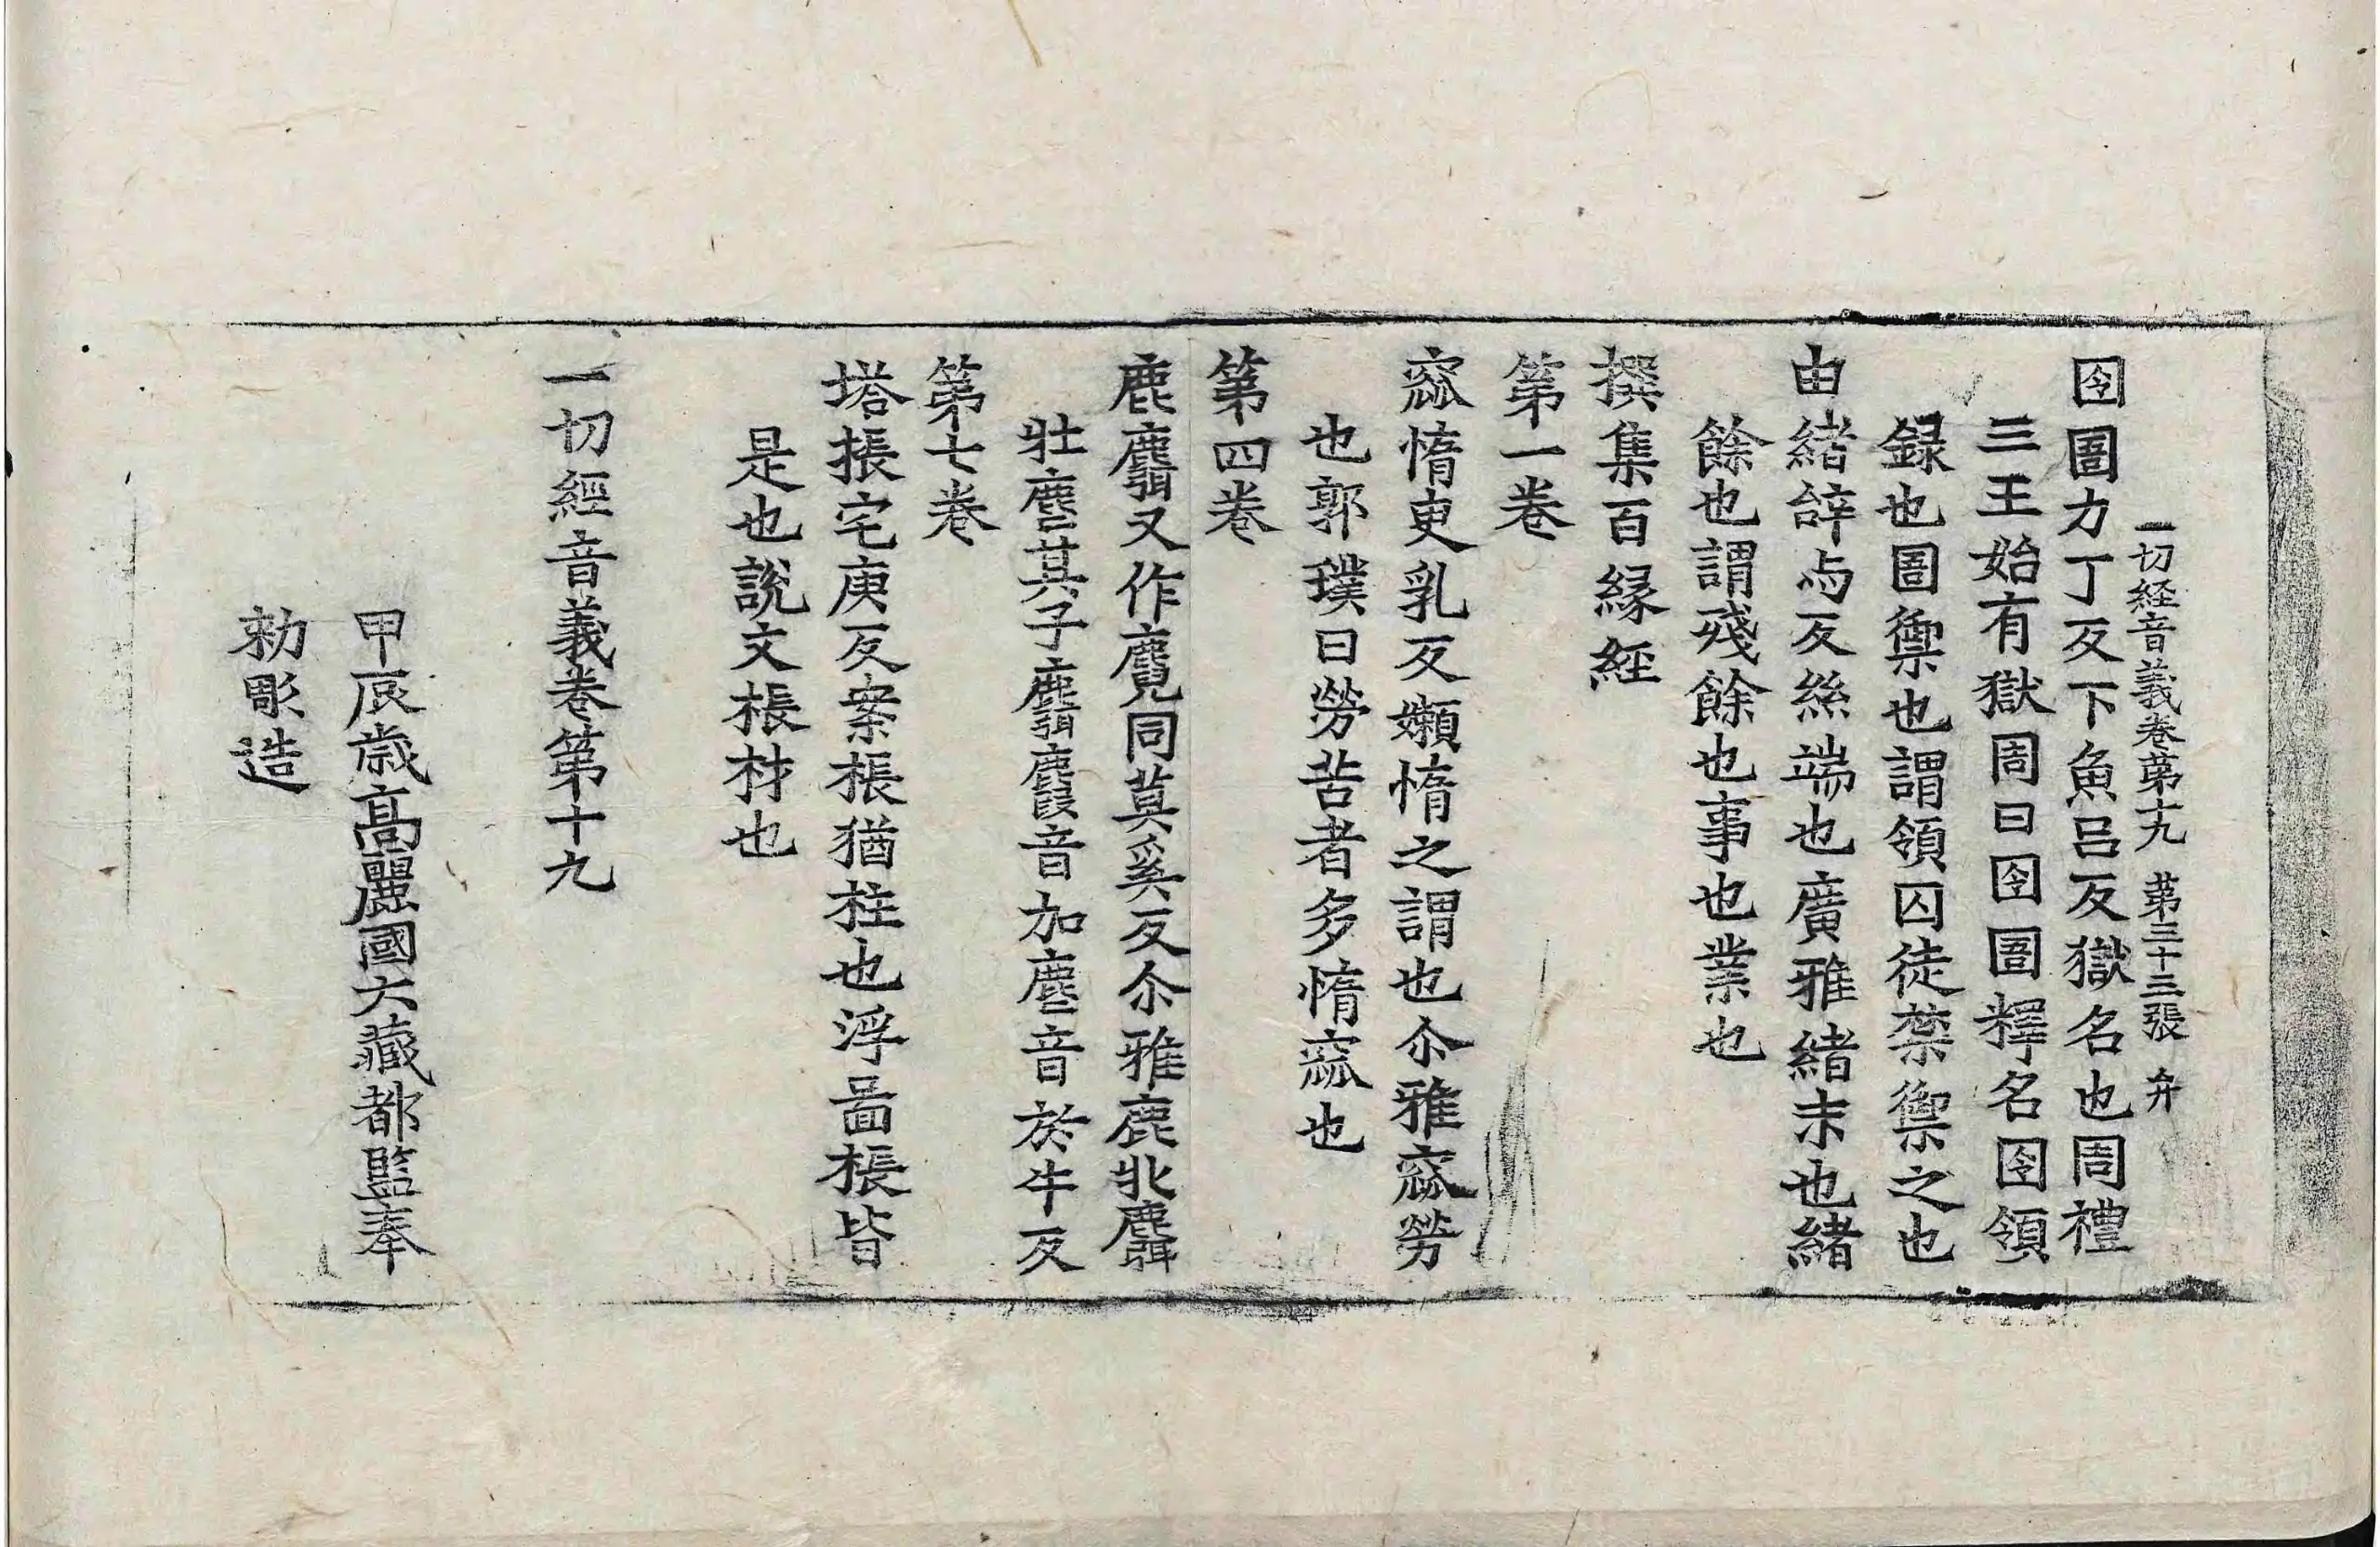 一切経音義卷第十九 第三十三張 弁
囹圄力丁反下魚吕反獄名也周禮
三王始有獄周曰囹圄釋名囹領
録也圄禦也謂領囚徒禁禦之也
由緒辝与反絲端也廣雅緒末也緒
餘也謂殘餘也事也業也
撰集百縁經
第一卷
窳惰臾乳反嬾惰之謂也尒雅窳勞
也郭璞曰勞苦者多惰窳也
第四卷
鹿麛又作麑同莫奚反尒雅鹿牝麛
牡麈其子麛麚音加麈音於牛反
第七卷
塔掁宅庚反案棖猶柱也浮啚棖皆
是也說文棖材也
一切經音義卷第十九
甲辰歳高麗國大藏都監奉
勑彫造